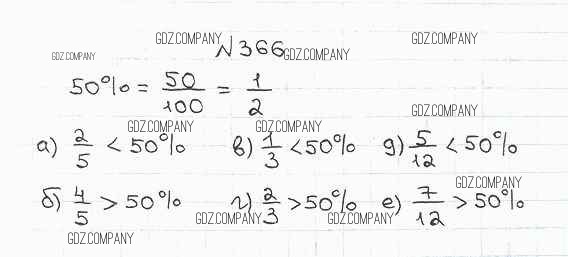 GDZ.COMPANY GDZ.COMPANY
N 366
GDZ.COMPANY GDZ.COMPANY
50% = 50/100 = 1/2
GDZ.COMPANY
GDZ.COMPANY GDZ.COMPANY
а) 2/5 < 50% в) 1/3 < 50% д) 5/12 < 50%
GDZ.COMPANY
б) 4/5 > 50% г) 2/3 > 50% е) 7/12 > 50%
GDZ.COMPANY GDZ.COMPANY
GDZ.COMPANY